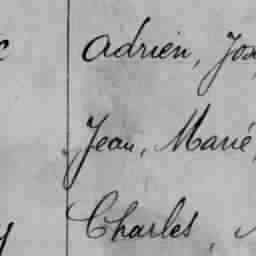 Adrien, Jos
Jean, Marie,
Charles,